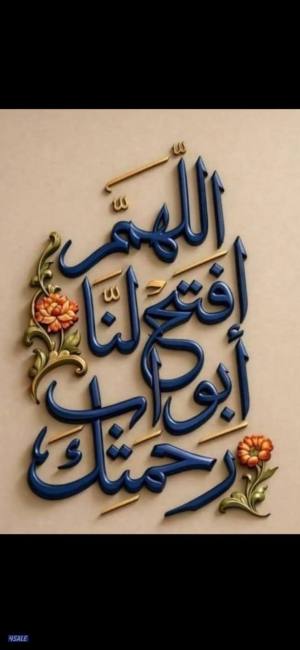 اللّهمّ
افتح لنّا
أبواب
رحمتك
4SALE